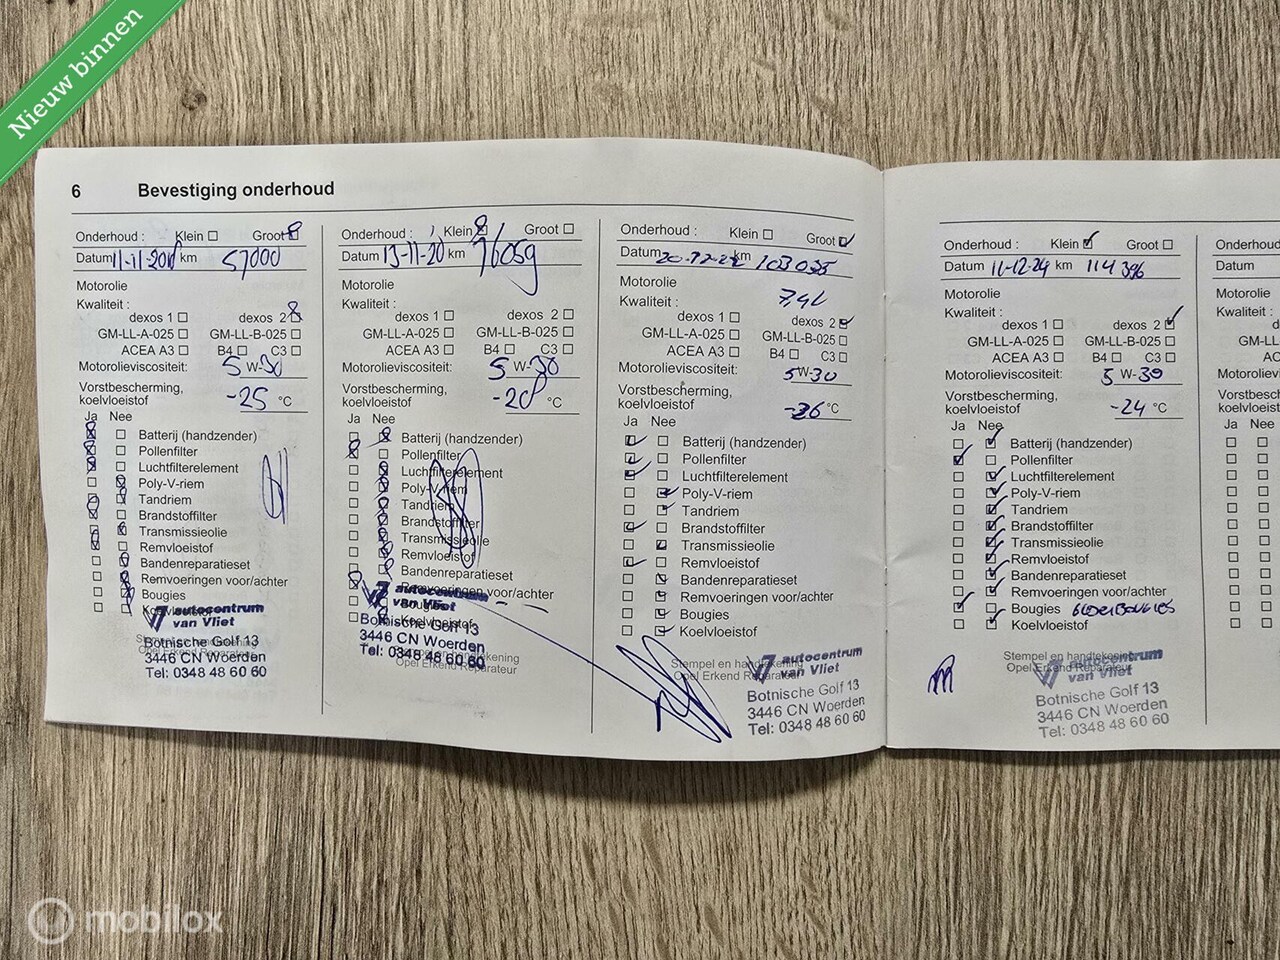 Nieuw binnen
6 Bevestiging onderhoud
Onderhoud : Klein Groot
Datum km 57000
Motorolie
Kwaliteit :
dexos 1 dexos 2
GM-LL-A-025 GM-LL-B-025
ACEA A3 B4 C3
Motorolieviscositeit: 5 W-30
Vorstbescherming,
koelvloeistof -25 °C
Ja Nee
Batterij (handzender)
Pollenfilter
Luchtfilterelement
Poly-V-riem
Tandriem
Brandstoffilter
Transmissieolie
Remvloeistof
Bandenreparatieset
Remvoeringen voor/achter
Bougies
autocentrum
van Vliet
Stempel en handtekening
Opel Erkend Reparateur
Botnische Golf 13
3446 CN Woerden
Tel: 0348 48 60 60
Onderhoud : Klein Groot
Datum 13-11-20 km 76059
Motorolie
Kwaliteit :
dexos 1 dexos 2
GM-LL-A-025 GM-LL-B-025
ACEA A3 B4 C3
Motorolieviscositeit: 5 W-30
Vorstbescherming,
koelvloeistof -28 °C
Ja Nee
Batterij (handzender)
Pollenfilter
Luchtfilterelement
Poly-V-riem
Tandriem
Brandstoffilter
Transmissieolie
Remvloeistof
Bandenreparatieset
Remvoeringen voor/achter
Bougies
Koelvloeistof
autocentrum
van Vliet
Botnische Golf 13
3446 CN Woerden
Tel: 0348 48 60 60
Stempel en handtekening
Opel Erkend Reparateur
Onderhoud : Klein Groot
Datum km 103035
Motorolie 7,4L
Kwaliteit :
dexos 1 dexos 2
GM-LL-A-025 GM-LL-B-025
ACEA A3 B4 C3
Motorolieviscositeit: 5W-30
Vorstbescherming,
koelvloeistof -36 °C
Ja Nee
Batterij (handzender)
Pollenfilter
Luchtfilterelement
Poly-V-riem
Tandriem
Brandstoffilter
Transmissieolie
Remvloeistof
Bandenreparatieset
Remvoeringen voor/achter
Bougies
Koelvloeistof
Stempel en handtekening
Opel Erkend Reparateur
autocentrum
van Vliet
Botnische Golf 13
3446 CN Woerden
Tel: 0348 48 60 60
Onderhoud : Klein Groot
Datum 11-12-24 km 114396
Motorolie
Kwaliteit :
dexos 1 dexos 2
GM-LL-A-025 GM-LL-B-025
ACEA A3 B4 C3
Motorolieviscositeit: 5 W-30
Vorstbescherming,
koelvloeistof -24 °C
Ja Nee
Batterij (handzender)
Pollenfilter
Luchtfilterelement
Poly-V-riem
Tandriem
Brandstoffilter
Transmissieolie
Remvloeistof
Bandenreparatieset
Remvoeringen voor/achter
Bougies GLOEIBOUGIES
Koelvloeistof
Stempel en handtekening
Opel Erkend Reparateur
autocentrum
van Vliet
Botnische Golf 13
3446 CN Woerden
Tel: 0348 48 60 60
Onderhoud
Datum
Motorolie
Kwaliteit :
GM-LL-
Motorolievi
Vorstbesc
koelvloeist
Ja Nee
mobilox